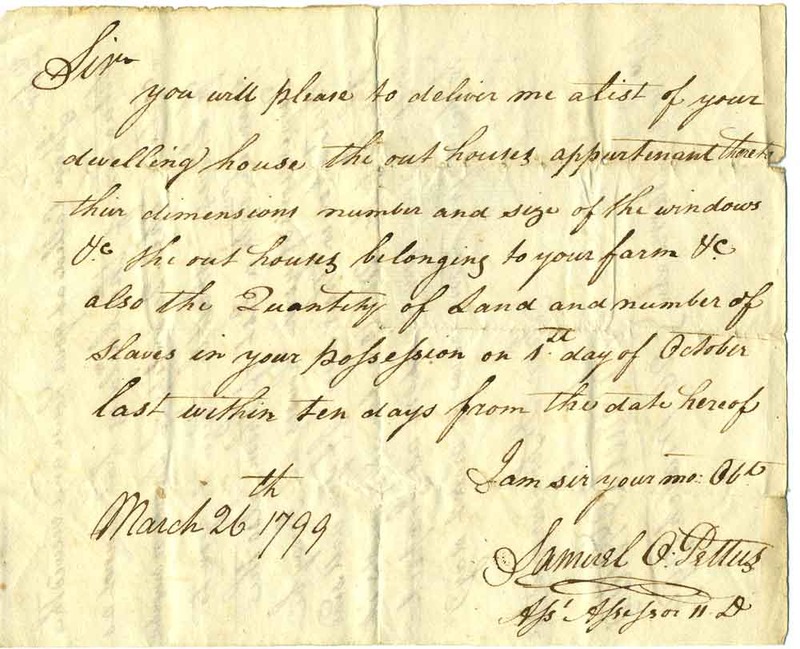 Sir
you will please to deliver me a list of your
dwelling house the out houses appurtenant thereto
their dimensions number and size of the windows
&c the out houses belonging to your farm &c
also the Quantity of Land and number of
slaves in your possession on 1st day of October
last within ten days from the date hereof
I am sir your mo: Obt
March 26th 1799
Samuel O. Pettus
Asst Assessor 11 D